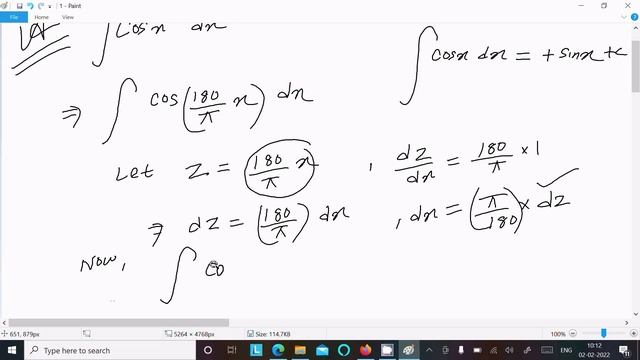 1 - Paint
File Home View
∫ cos°x dx
∫ cosx dx = + sinx + c
⇒ ∫ cos(180/π x) dx
Let Z = (180/π) x , dZ/dx = 180/π × 1
⇒ dZ = (180/π) dx , dx = (π/180) × dZ
Now, ∫ co
651, 879px 5264 × 4768px Size: 114.7KB 100%
10:12
02-02-2022